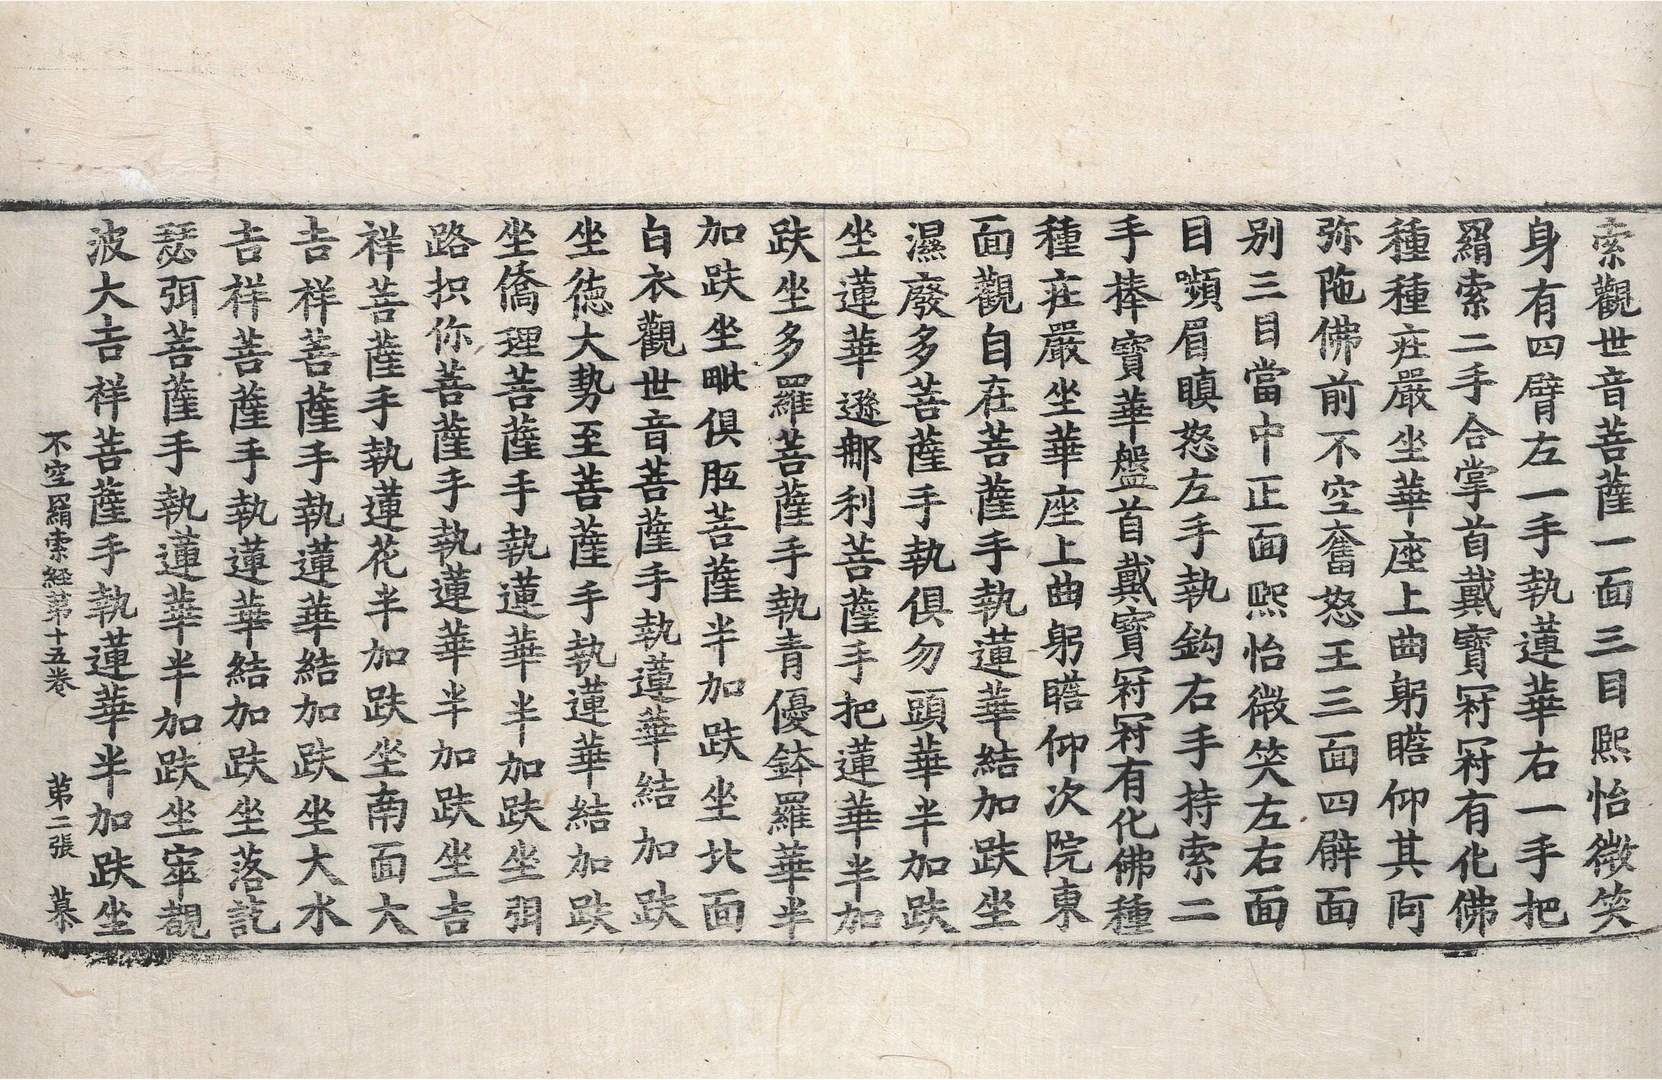 索觀世音菩薩一面三目熙怡微笑
身有四臂左一手執蓮華右一手把
羂索二手合掌首戴寶冠冠有化佛
種種莊嚴坐華座上曲躬瞻仰其阿
弥陁佛前不空奮怒王三面四臂面
別三目當中正面熙怡微笑左右面
目嚬眉瞋怒左手執鉤右手持索二
手捧寶華盤首戴寶冠冠有化佛種
種莊嚴坐華座上曲躬瞻仰次院東
面觀自在菩薩手執蓮華結加趺坐
濕廢多菩薩手執俱勿頭華半加趺
坐蓮華遜那利菩薩手把蓮華半加
趺坐多羅菩薩手執青優鉢羅華半
加趺坐毗俱胝菩薩半加趺坐北面
白衣觀世音菩薩手執蓮華結加趺
坐德大勢至菩薩手執蓮華結加趺
坐僑理菩薩手執蓮華半加趺坐弭
路抧你菩薩手執蓮華半加趺坐吉
祥菩薩手執蓮花半加趺坐南面大
吉祥菩薩手執蓮華結加趺坐大水
吉祥菩薩手執蓮華結加趺坐落訖
瑟弭菩薩手執蓮華半加趺坐窣覩
波大吉祥菩薩手執蓮華半加趺坐
不空羂索經第十五卷 第二張 慕